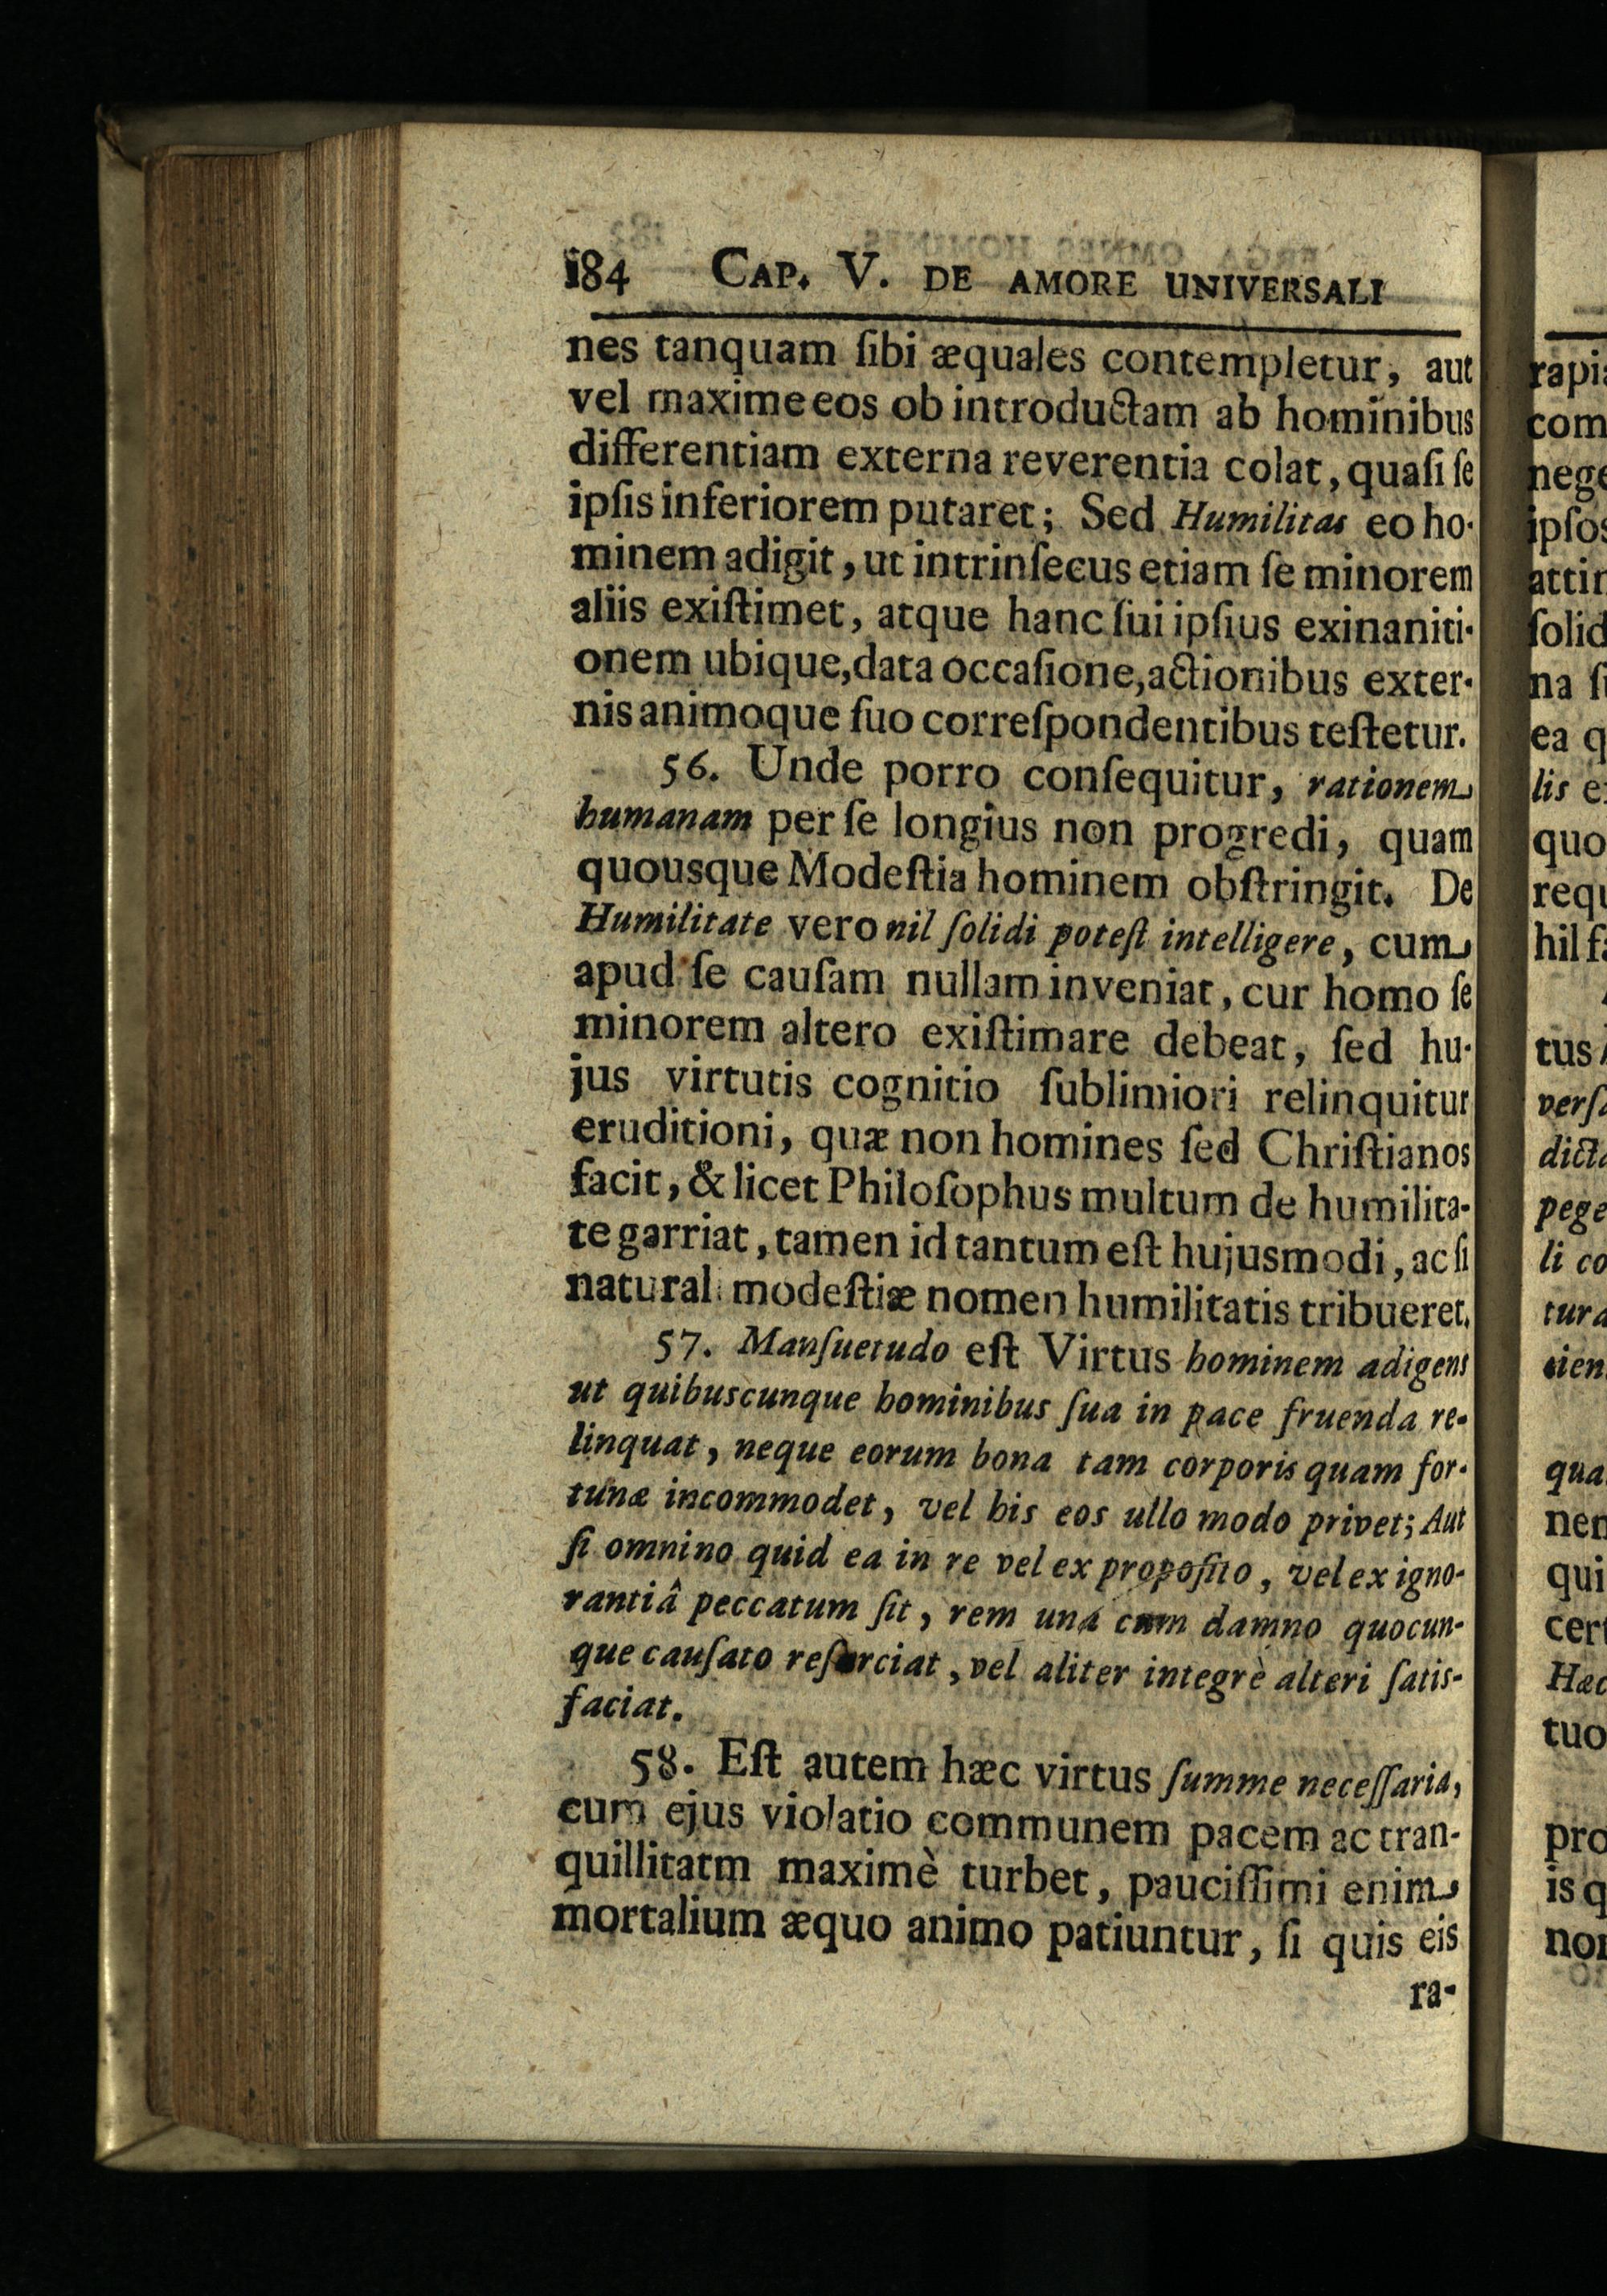 184 CAP. V. DE AMORE UNIVERSALI
nes tanquam ſibi æquales contempletur, aut
vel maxime eos ob introductam ab hominibus
differentiam externa reverentia colat, quaſi ſe
ipſis inferiorem putaret; Sed Humilitas eo ho-
minem adigit, ut intrinſecus etiam ſe minorem
aliis exiſtimet, atque hanc ſui ipſius exinaniti-
onem ubique, data occaſione, actionibus exter-
nis animoque ſuo correſpondentibus teſtetur.
56. Unde porro conſequitur, rationem
humanam per ſe longius non progredi, quam
quousque Modeſtia hominem obſtringit. De
Humilitate vero nil ſolidi poteſt intelligere, cum
apud ſe cauſam nullam inveniat, cur homo ſe
minorem altero exiſtimare debeat, ſed hu-
jus virtutis cognitio ſublimiori relinquitur
eruditioni, quæ non homines ſed Chriſtianos
facit, & licet Philoſophus multum de humilita-
te garriat, tamen id tantum eſt hujusmodi, ac ſi
natural modeſtiæ nomen humilitatis tribueret.
57. Manſuetudo eſt Virtus hominem adigens
ut quibuscunque hominibus ſua in pace fruenda re-
linquat, neque eorum bona tam corporis quam for-
tunæ incommodet, vel his eos ullo modo privet; Aut
ſi omnino quid ea in re vel ex propoſito, vel ex igno-
rantiâ peccatum ſit, rem una cum damno quocun-
que cauſato reſarciat, vel aliter integrè alteri ſatis-
faciat.
58. Eſt autem hæc virtus ſumme neceſſaria,
cum ejus violatio communem pacem ac tran-
quillitatm maximè turbet, pauciſſimi enim
mortalium æquo animo patiuntur, ſi quis eis
ra-
rapi
com
nege
ipſos
attin
ſolid
na ſ
ea q
lis e
quo
requ
hil f
tus
verſ
dict
pege
li co
tura
tien
qua
nen
qui
cert
Hæc
tuo
pro
is q
non